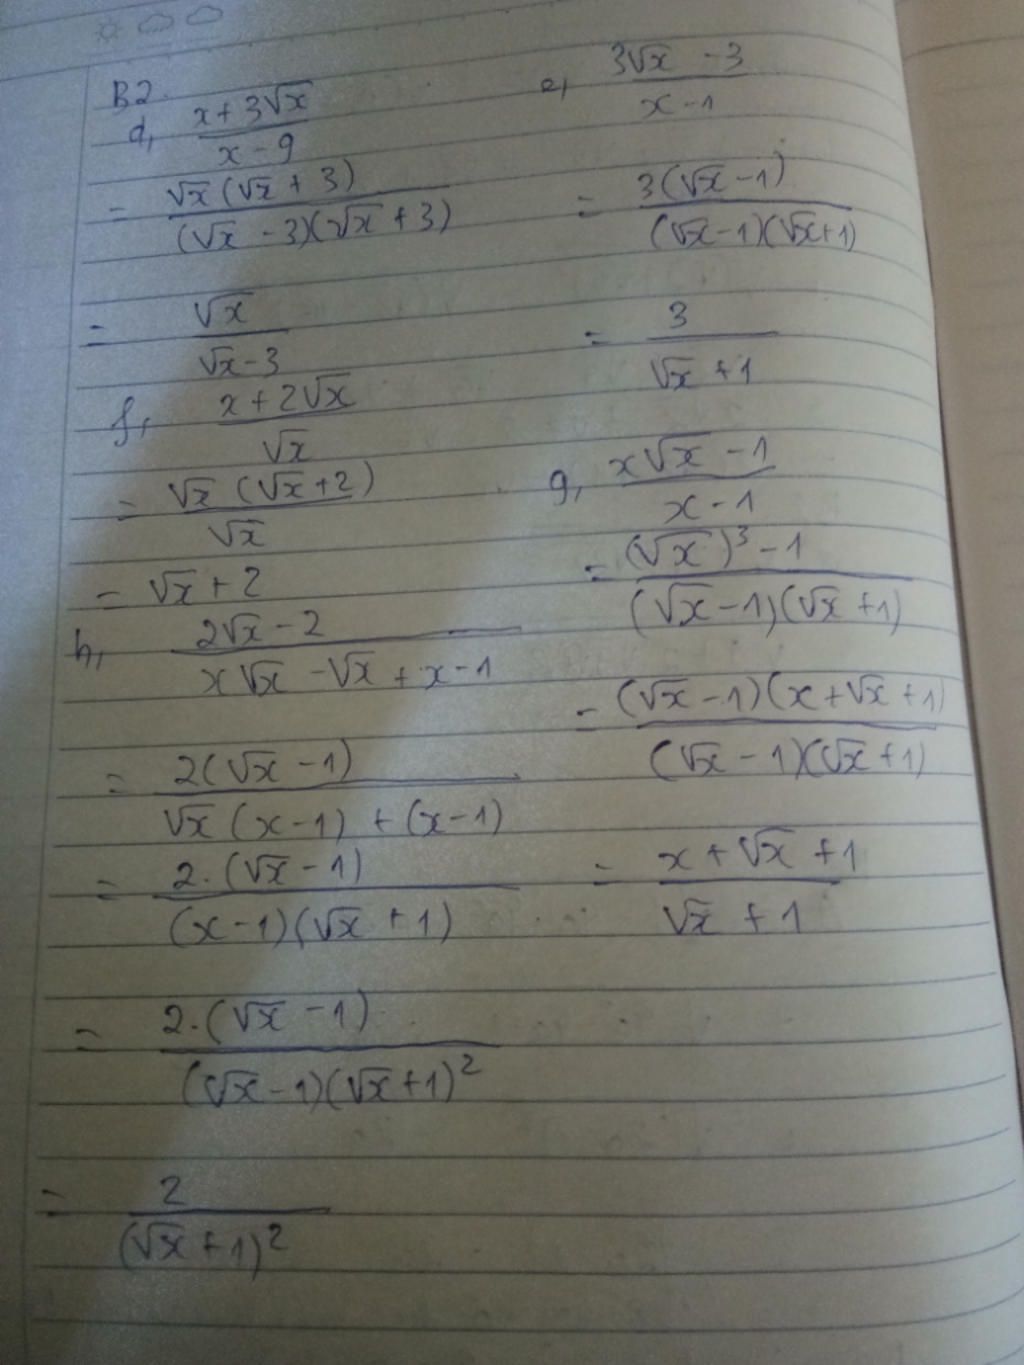 B2.
d, (x + 3√x)/(x - 9)
= (√x(√x + 3))/((√x - 3)(√x + 3))
= √x/(√x - 3)
e, (3√x - 3)/(x - 1)
= (3(√x - 1))/((√x - 1)(√x + 1))
= 3/(√x + 1)
f, (x + 2√x)/√x
= (√x (√x + 2))/√x
= √x + 2
g, (x√x - 1)/(x - 1)
= ((√x)³ - 1)/((√x - 1)(√x + 1))
= ((√x - 1)(x + √x + 1))/((√x - 1)(√x + 1))
= (x + √x + 1)/(√x + 1)
h, (2√x - 2)/(x√x - √x + x - 1)
= (2(√x - 1))/(√x(x - 1) + (x - 1))
= (2.(√x - 1))/((x - 1)(√x + 1))
= (2.(√x - 1))/((√x - 1)(√x + 1)²)
= 2/(√x + 1)²